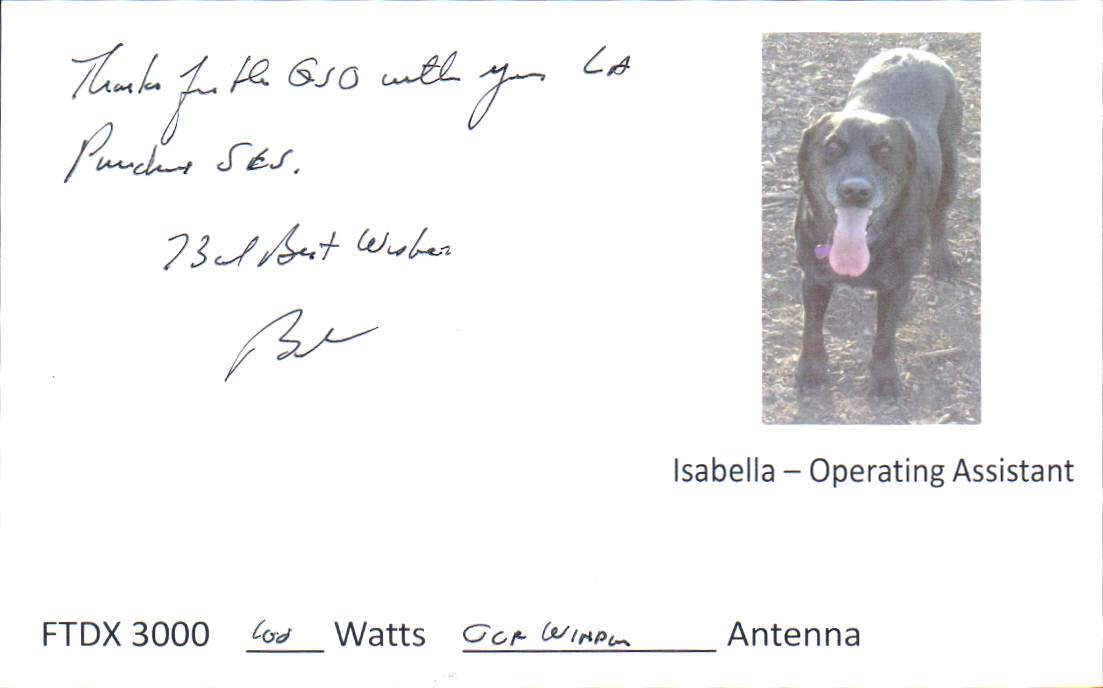 Thanks for the QSO with your LA
Purchase SES.
73 and Best Wishes
Bob
Isabella – Operating Assistant
FTDX 3000 100 Watts OCF Windom Antenna